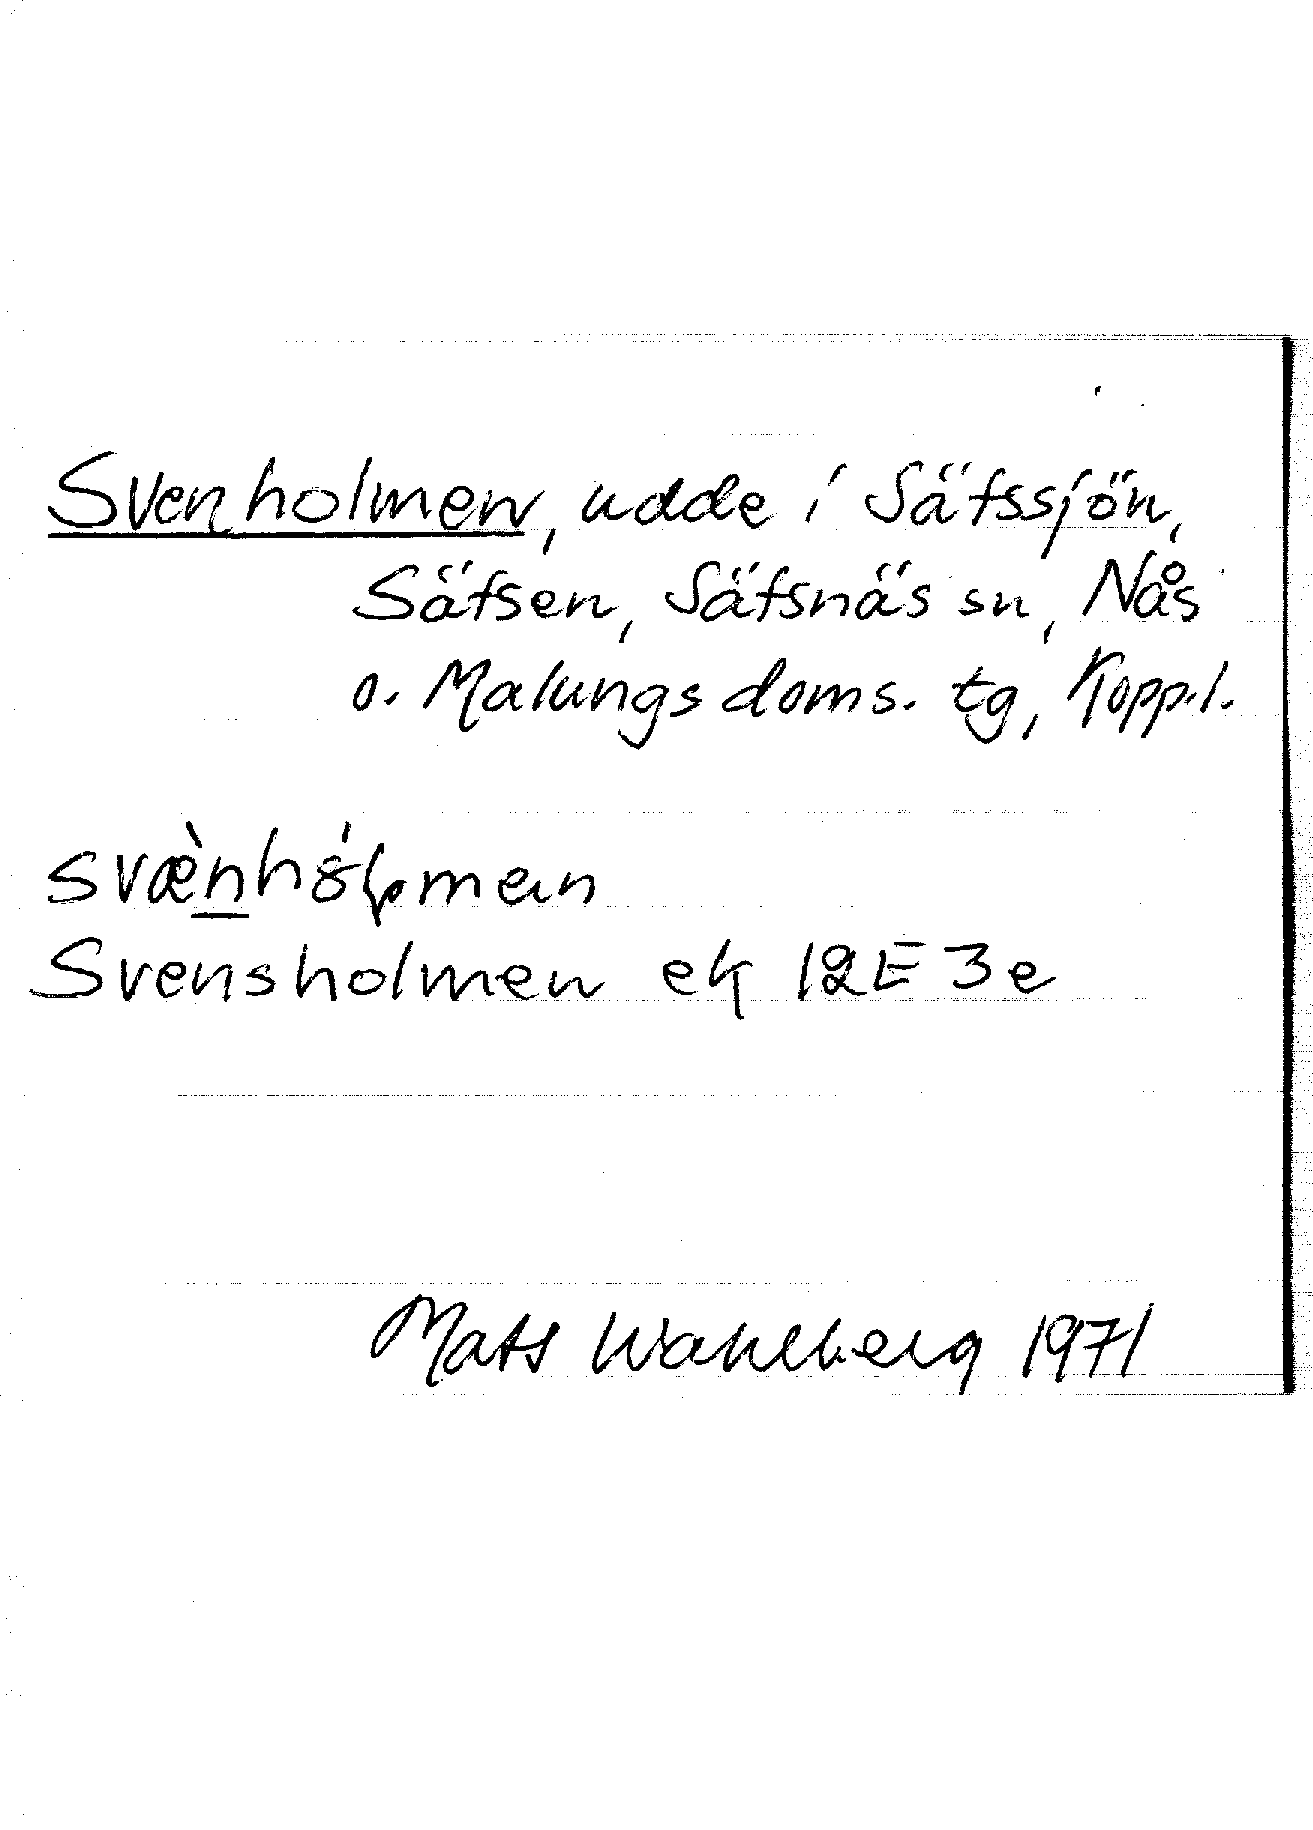 Svenholmen, udde i Säfssjön,
Säfsen, Säfsnäs sn, Nås
o. Malungs doms. tg, Kopp.l.
Svensholmen ek 12E 3e
Mats Wahlberg 1971